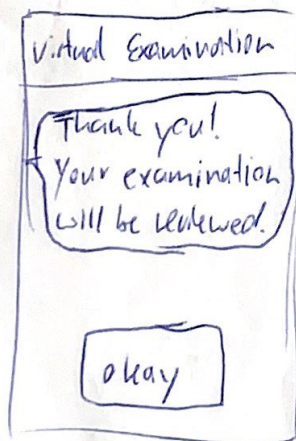 Virtual Examination
Thank you!
Your examination
will be reviewed.
okay